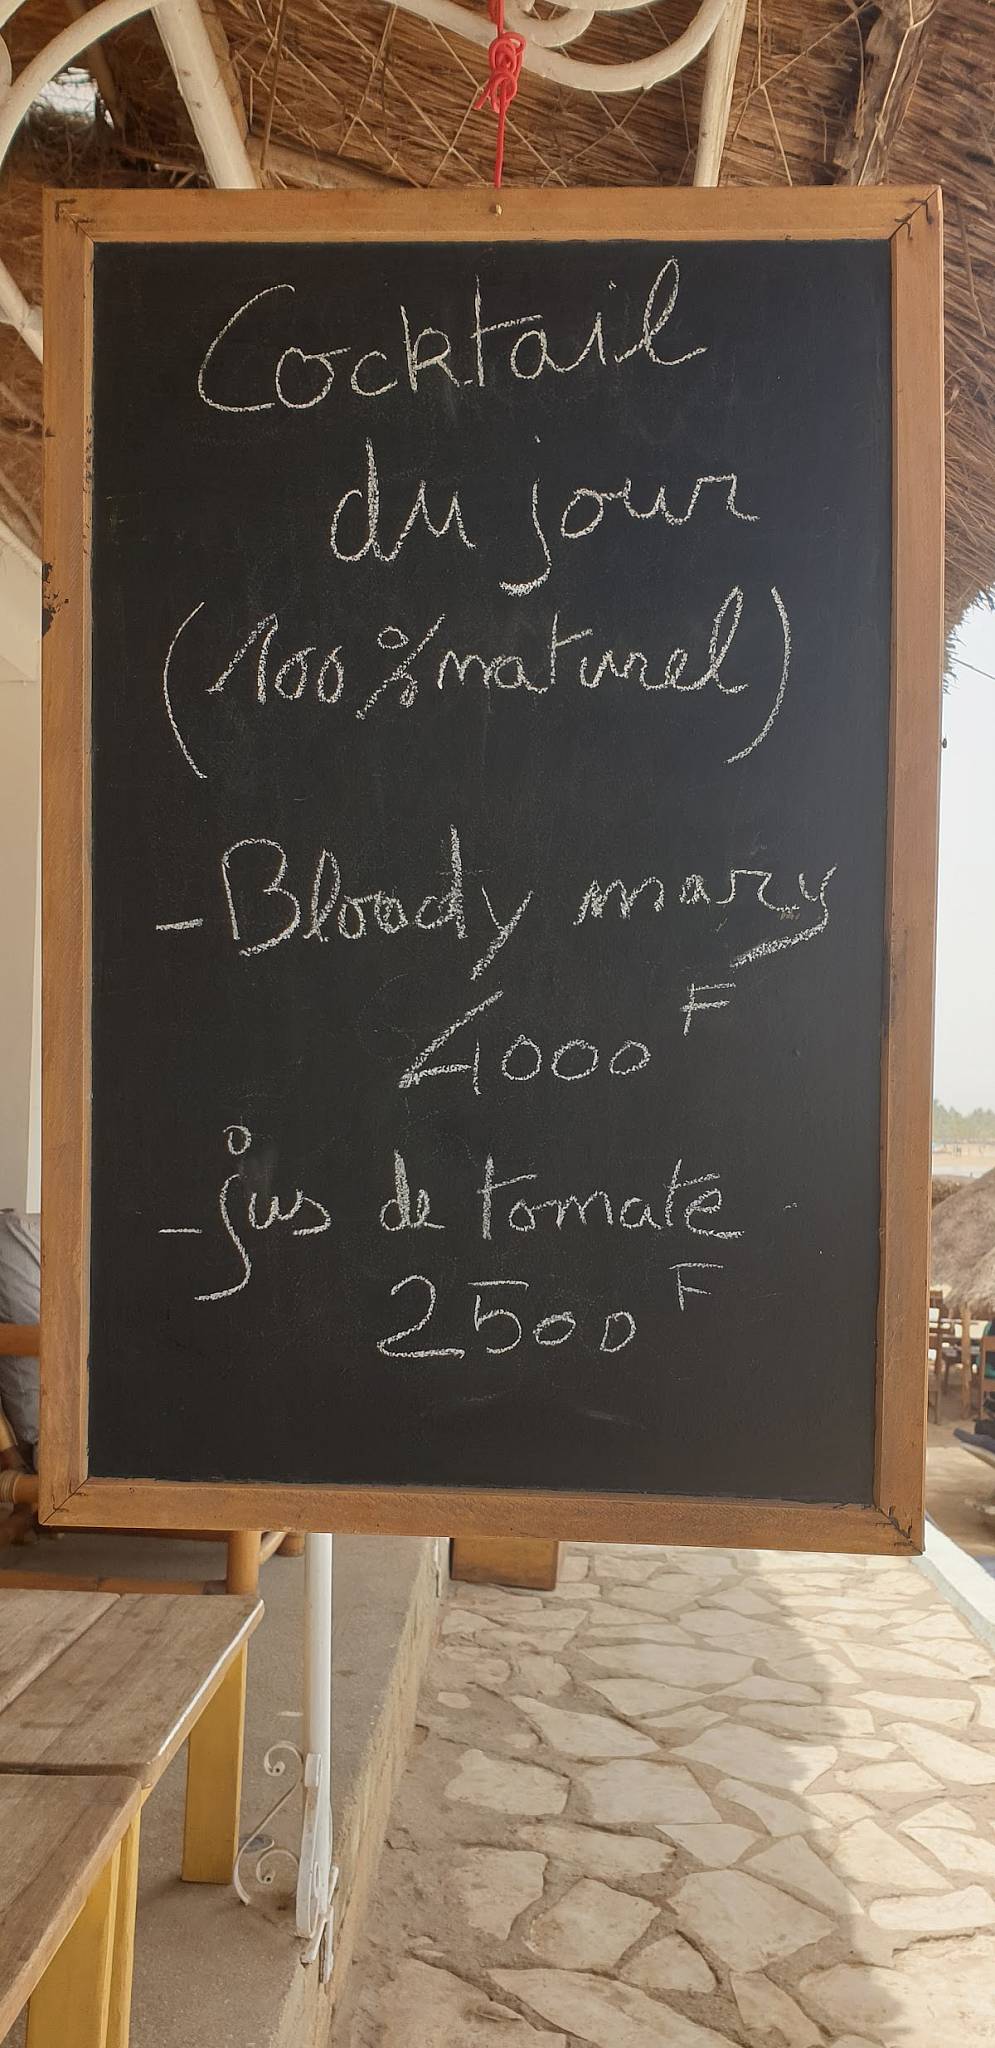 Cocktail
du jour
(100% naturel)
- Bloody mary
4000 F
- jus de tomate
2500 F